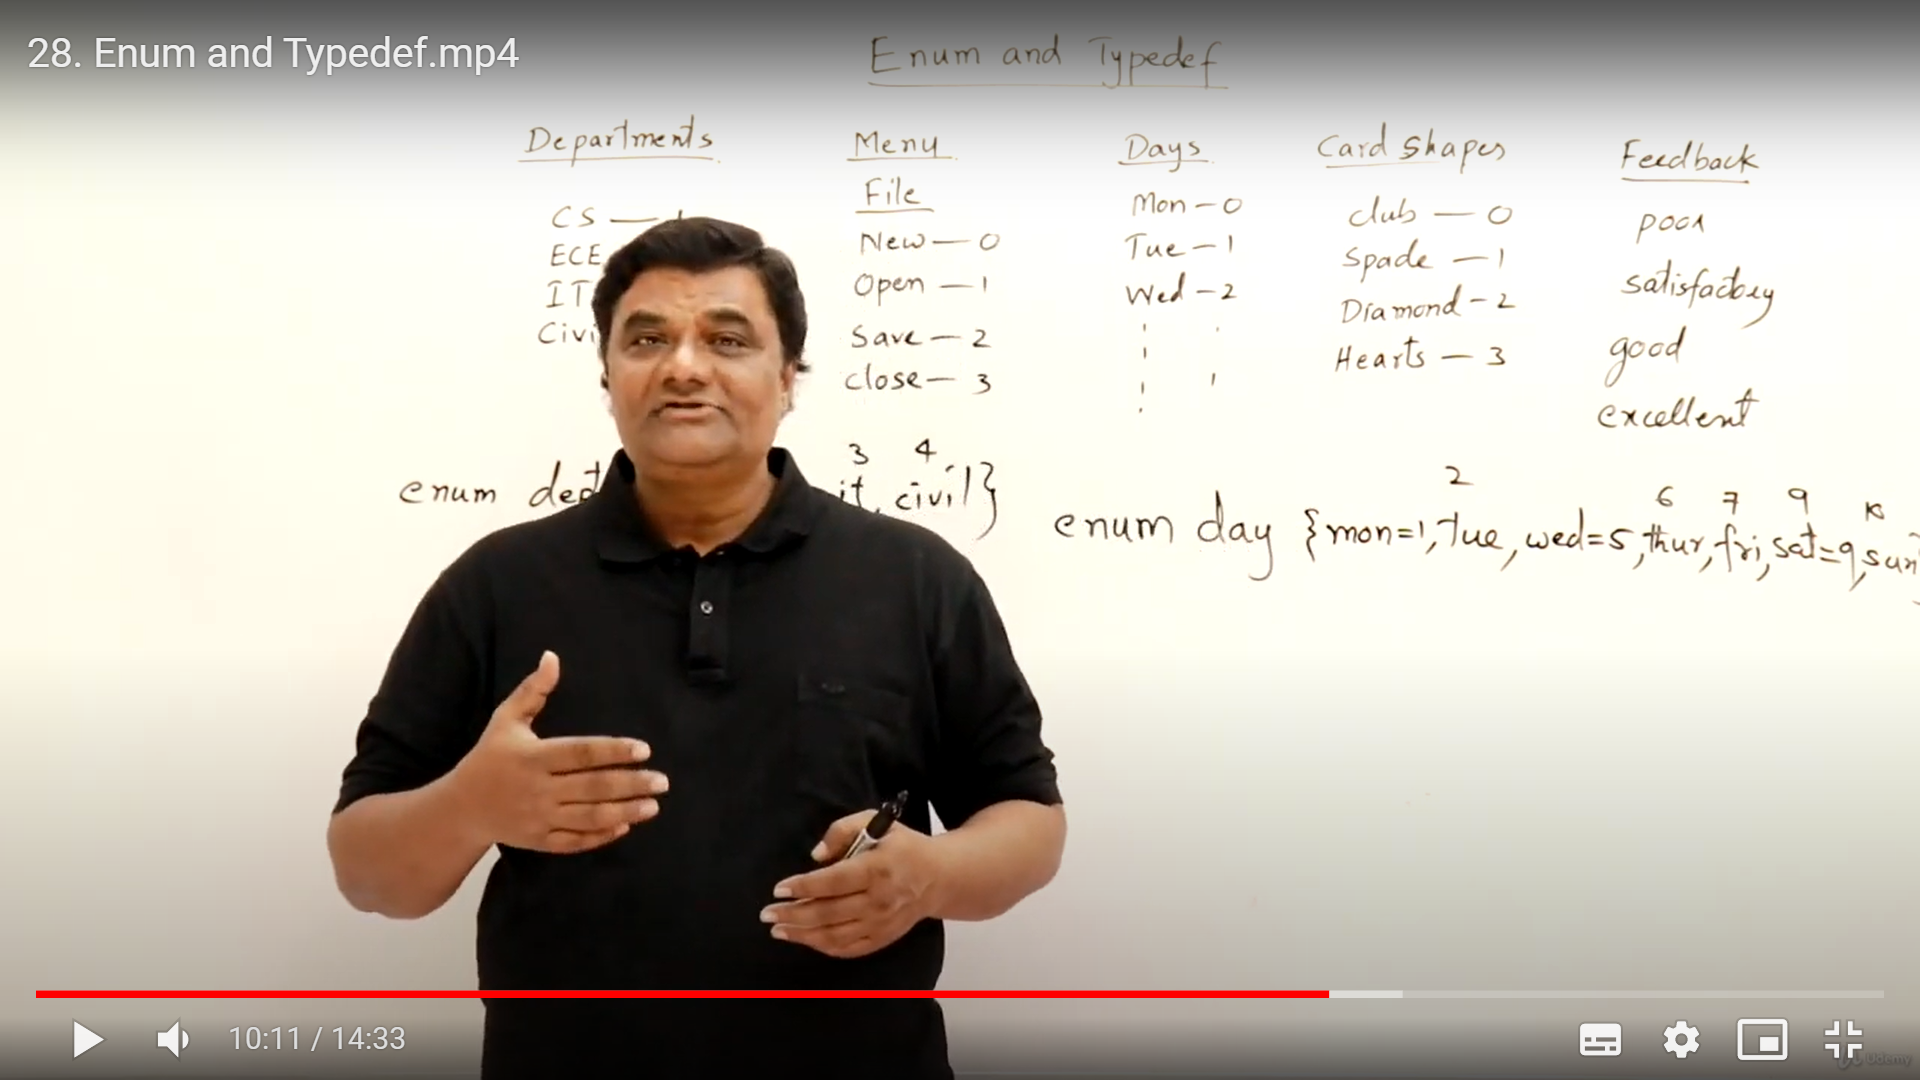 28. Enum and Typedef.mp4
Enum and Typedef
Departments
CS —
ECE
IT
Civi
Menu
File
New — 0
Open — 1
Save — 2
close — 3
Days
Mon — 0
Tue — 1
Wed — 2
Card Shapes
club — 0
Spade — 1
Diamond - 2
Hearts — 3
Feedback
poor
satisfactory
good
excellent
3 4
enum dept it, civil}
2 6 7 9 10
enum day {mon=1, Tue, wed=5, thur, fri, sat=9, sun}
10:11 / 14:33
Udemy